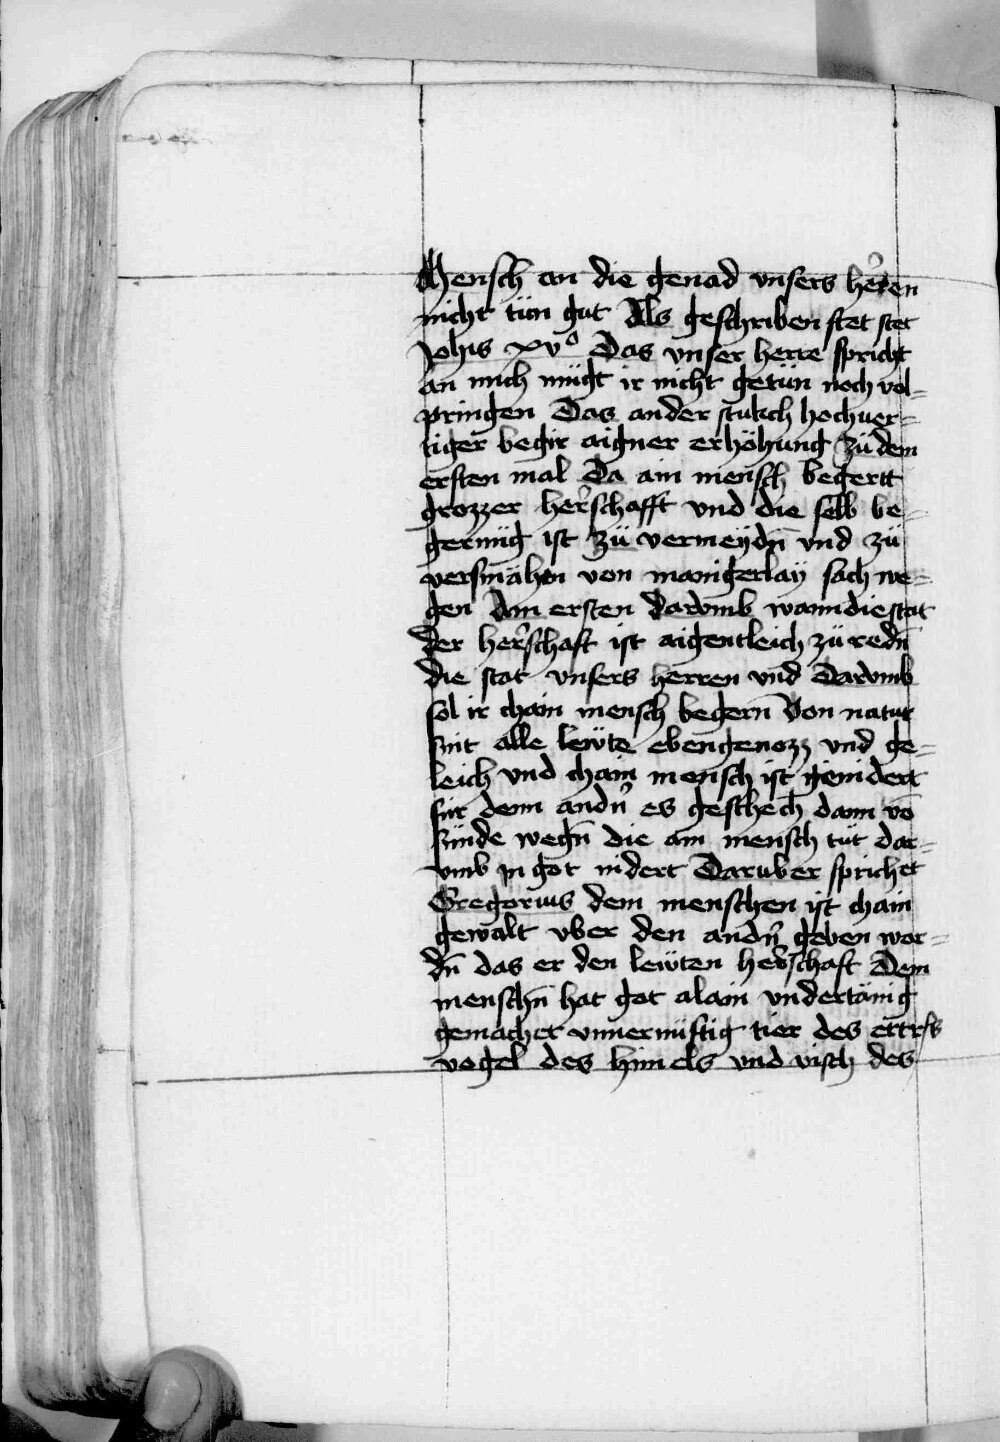 Mensch an die genad vnsers herren
nicht tün gut Als geschriben stet stet
Johis xvº Das vnser herre spricht
an mich mügt ir nicht getün noch vol=
pringen Das ander stukch hochuer=
tiger begir aigner erhöhung zü dem
ersten mal Da ain mensch begertt
grozzer her̉schafft vnd die selb be=
gerung ist zü vermeydn̄ vnd zü
versmähen von manigerlay sach we=
gen Am ersten darvmb wann die stat
der her̉schaft ist aigentleich zü redn̄
die stat vnsers herren vnd Darvmb
sol ir chain mensch begern̄ Von natur
sint alle lewte ebengenozz vnd ge=
leich vnd chain mensch ist genidert
für denn andn̉ es geschech dann vō
sünde wegn̄ die ain mensch tüt dar=
vmb jn got nidert Daruber sprichet
Gregorius dem menschen ist chain
gewalt vber den andn̉ geben wor=
dn̄ das er den lewten her̉schaft Dem
menschn̄ hat got alain vndertänig
gemachet vnuernüftig tier des ettrʃs
vogel des himels vnd visch des